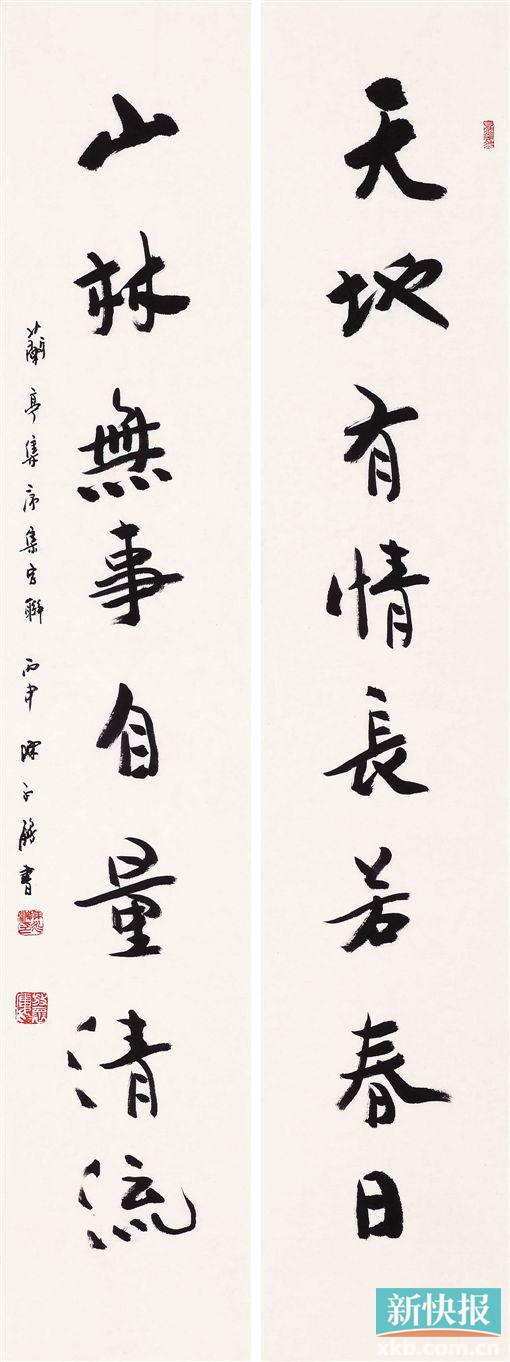 天地有情長若春日
山林無事自量清流
蘭亭集序集字聯 丙申 書
新快报
xkb.com.cn